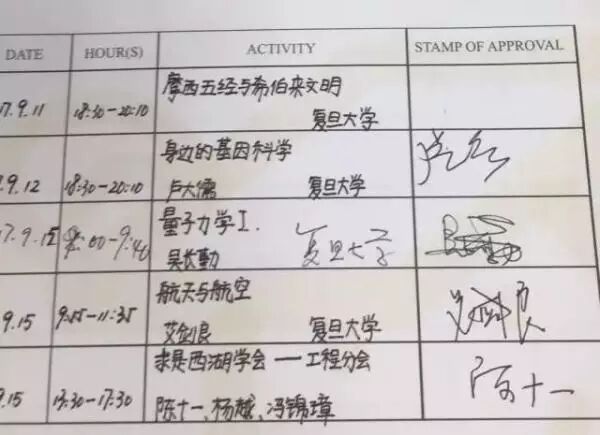 DATE HOUR(S) ACTIVITY STAMP OF APPROVAL
摩西五经与希伯来文明
17.9.11 18:30-20:10 复旦大学
身边的基因科学
9.12 18:30-20:10 卢大儒 复旦大学
量子力学I.
17.9.15 8:00-9:40 吴长勤 复旦大学
航天与航空
9.15 9:55-11:35 艾剑良 复旦大学
求是西湖学会——工程分会
9.15 13:30-17:30 陈十一、杨越、冯锦璋 陈十一